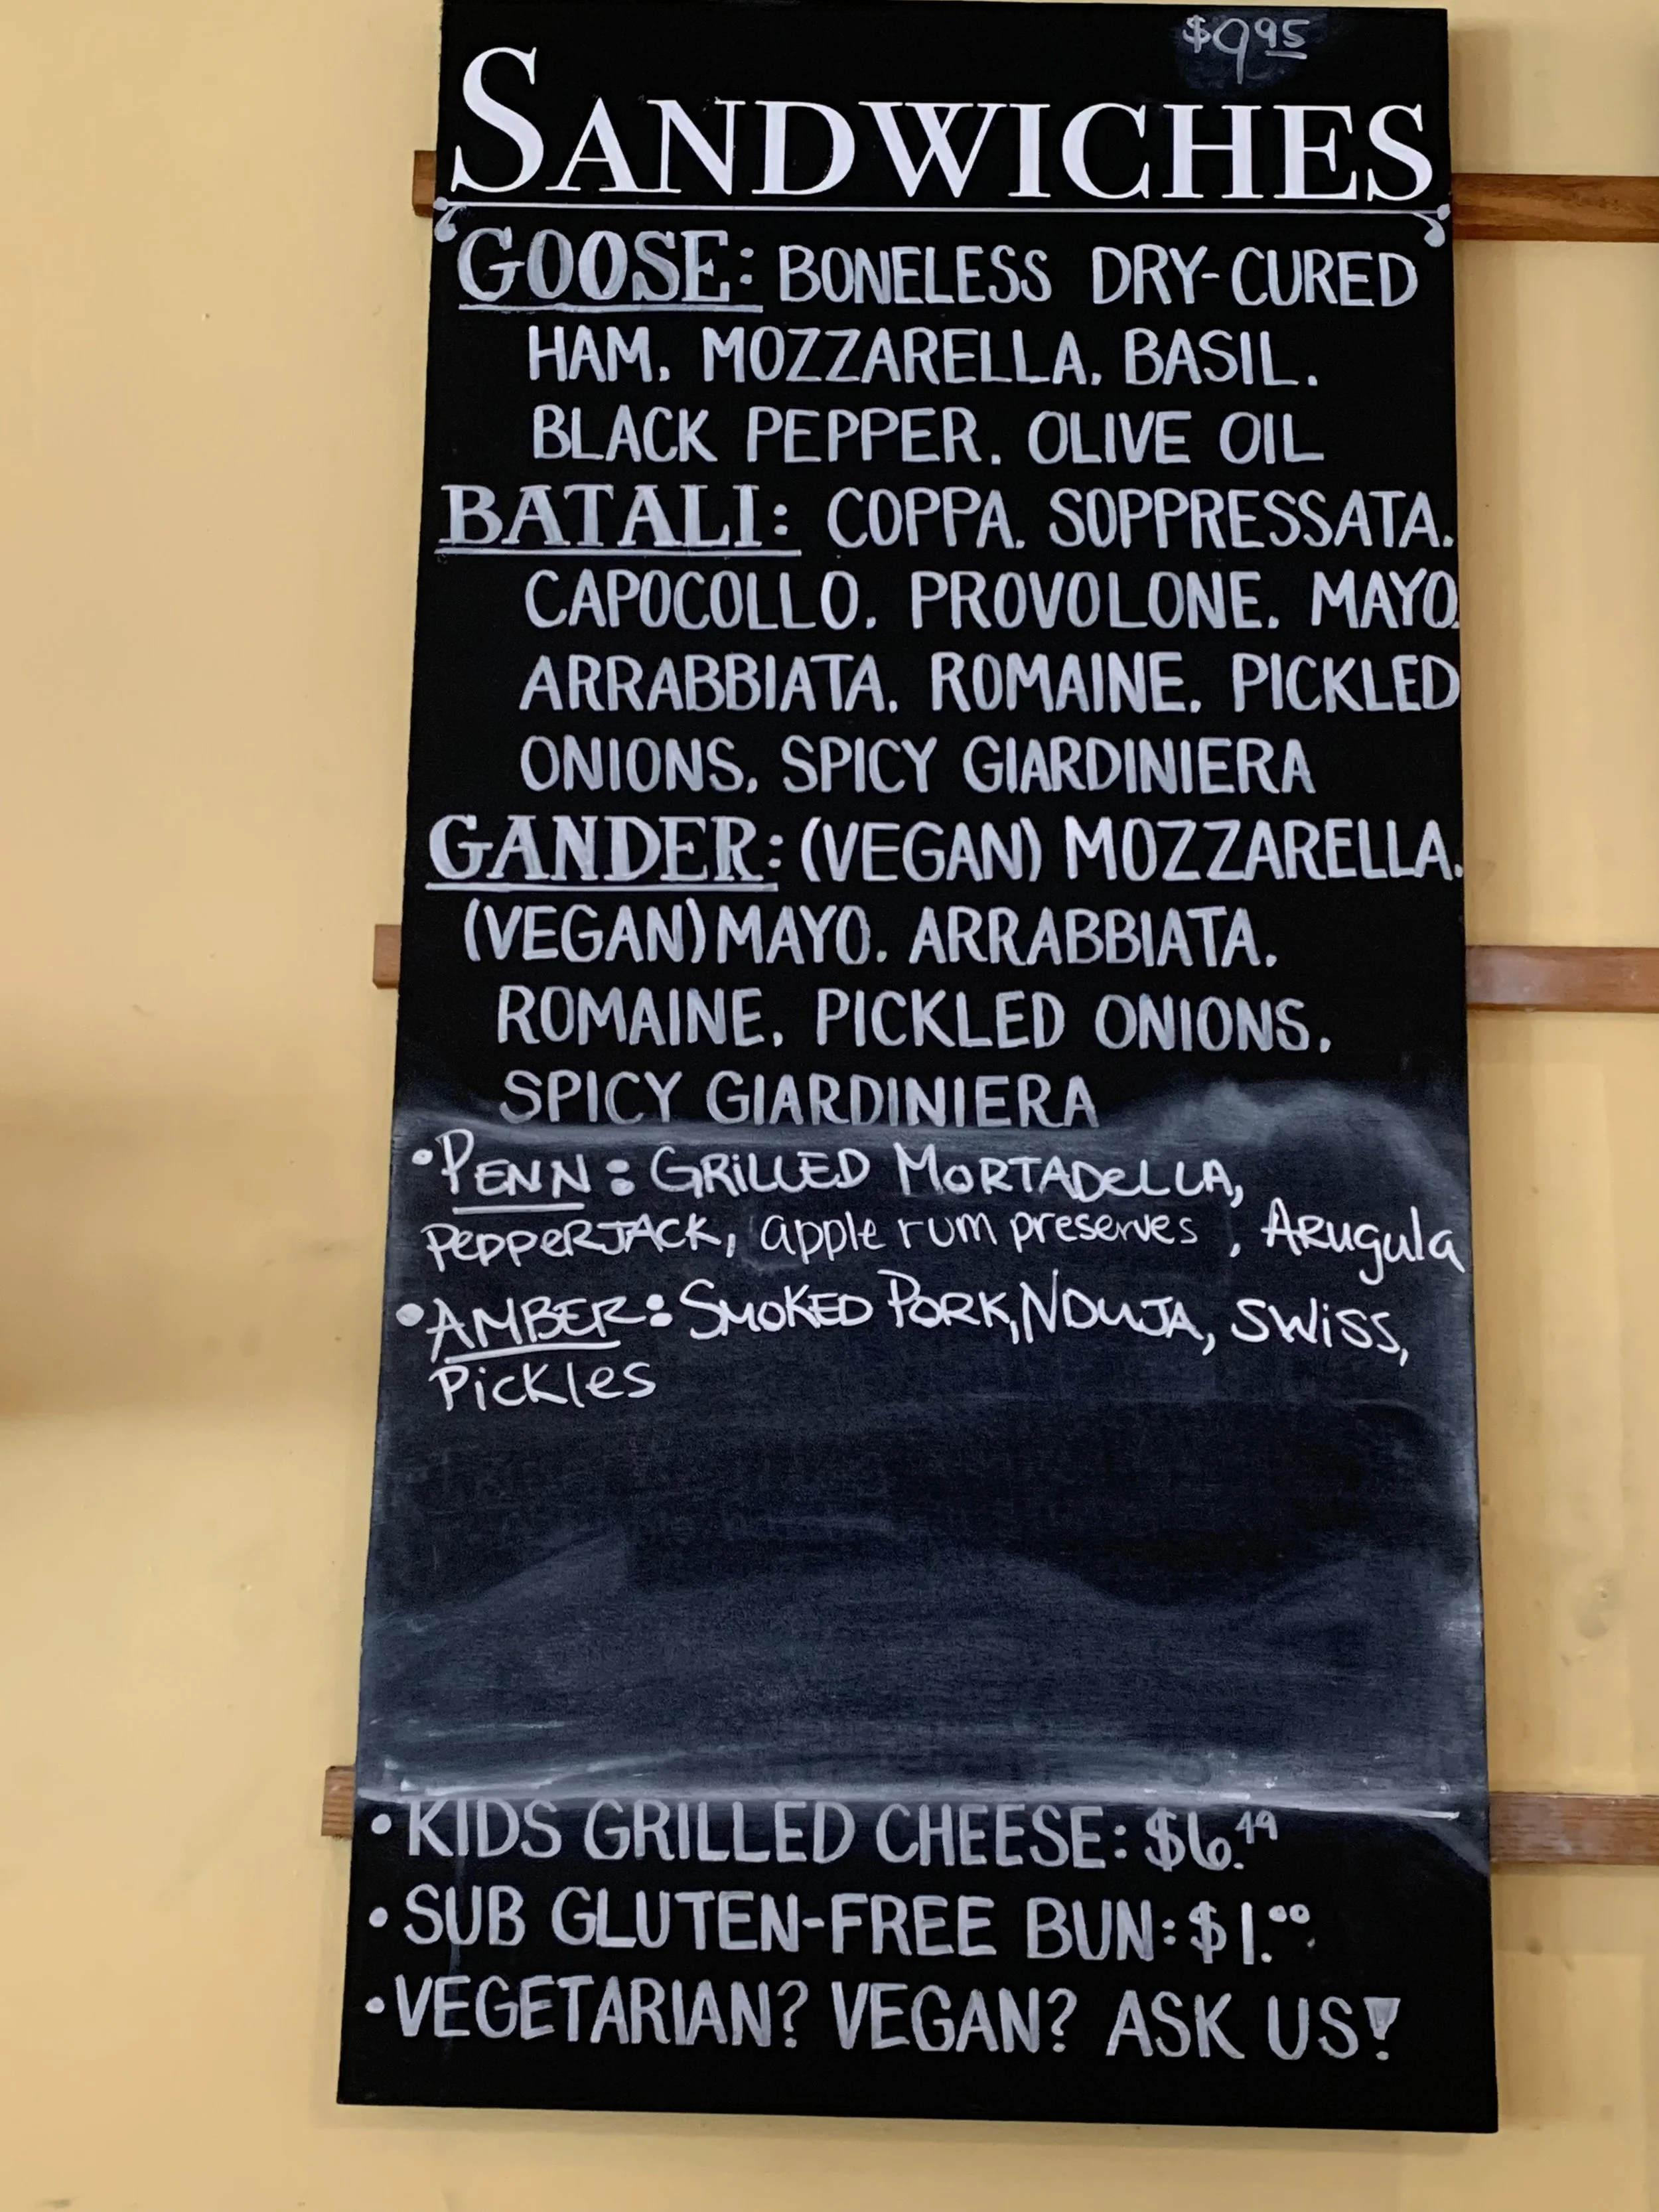 $9.95
SANDWICHES
GOOSE: BONELESS DRY-CURED
HAM, MOZZARELLA, BASIL,
BLACK PEPPER, OLIVE OIL
BATALI: COPPA, SOPPRESSATA,
CAPOCOLLO, PROVOLONE, MAYO,
ARRABBIATA, ROMAINE, PICKLED
ONIONS, SPICY GIARDINIERA
GANDER: (VEGAN) MOZZARELLA,
(VEGAN) MAYO, ARRABBIATA,
ROMAINE, PICKLED ONIONS,
SPICY GIARDINIERA
•PENN: GRILLED MORTADELLA,
PEPPERJACK, apple rum preserves, ARugula
•AMBER: SMOKED PORK, NDUJA, SWISS,
Pickles
• KIDS GRILLED CHEESE: $6.49
• SUB GLUTEN-FREE BUN: $1.00
• VEGETARIAN? VEGAN? ASK US!